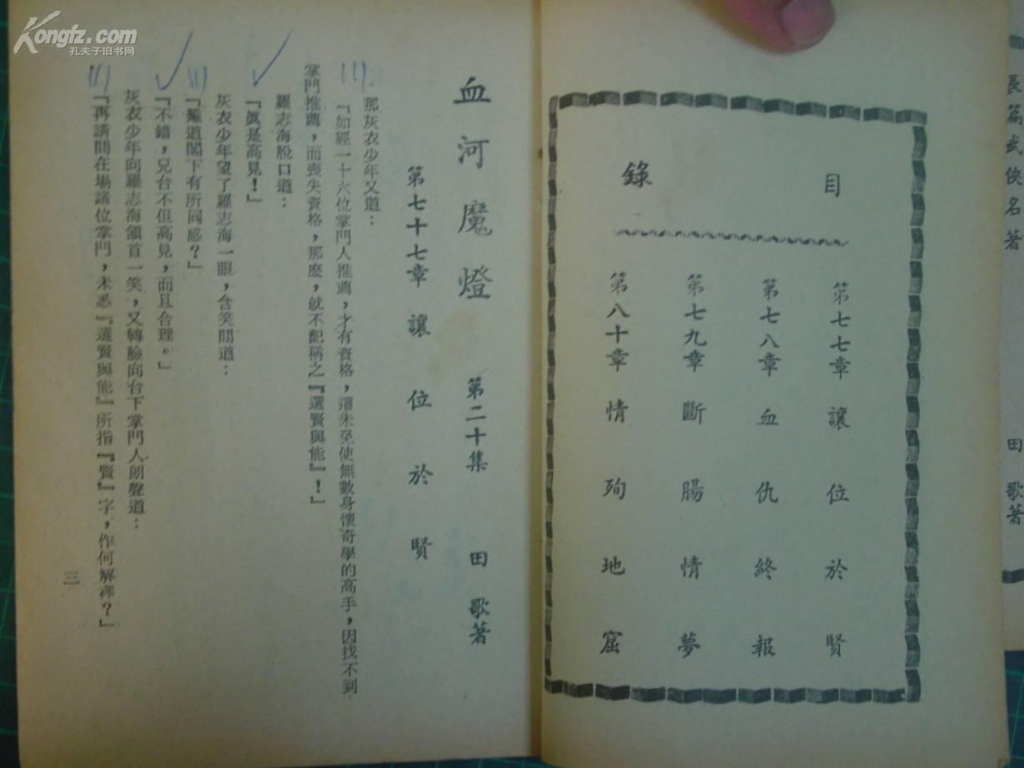 Kongfz.com
孔夫子旧书网
長篇武俠名著
田歌著
目錄
第七七章 讓位於賢
第七八章 血仇終報
第七九章 斷腸情夢
第八十章 情殉地窟
血河魔燈 第二十集 田歌著
第七十七章 讓位於賢
那灰衣少年又道：
「如經一十六位掌門人推薦，才有資格，這未免使無數身懷奇學的高手，因找不到
掌門推薦，而喪失資格，那麼，就不配稱之『選賢與能』！」
羅志海脫口道：
「真是高見！」
灰衣少年望了羅志海一眼，含笑問道：
「難道閣下有所同感？」
「不錯，兄台不但高見，而且合理。」
灰衣少年向羅志海頷首一笑，又轉臉向台下掌門人朗聲道：
「再請問在場諸位掌門，未悉『選賢與能』所指『賢』字，作何解釋？」
三